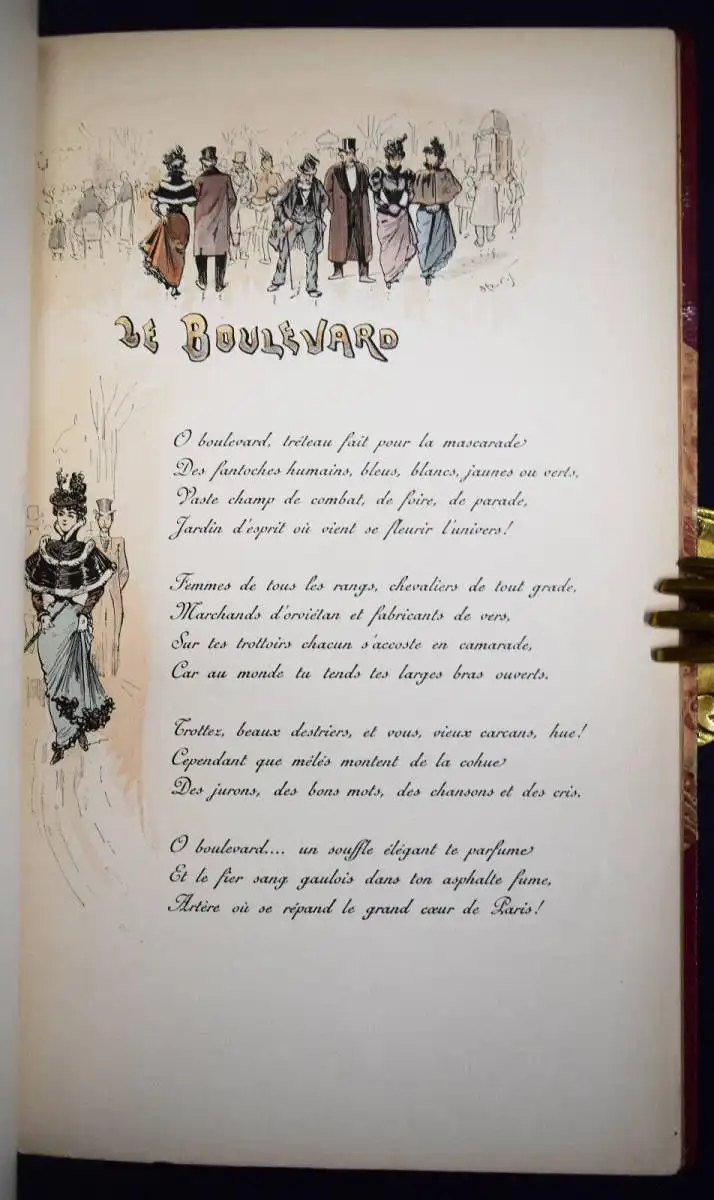 LE BOULEVARD
O boulevard, tréteau fait pour la mascarade
Des fantoches humains, bleus, blancs, jaunes ou verts,
Vaste champ de combat, de foire, de parade,
Jardin d'esprit où vient se fleurir l'univers!
Femmes de tous les rangs, chevaliers de tout grade,
Marchands d'orviétan et fabricants de vers,
Sur tes trottoirs chacun s'accoste en camarade,
Car au monde tu tends tes larges bras ouverts.
Trottez, beaux destriers, et vous, vieux carcans, hue!
Cependant que mêlés montent de la cohue
Des jurons, des bons mots, des chansons et des cris.
O boulevard.... un souffle élégant te parfume
Et le fier sang gaulois dans ton asphalte fume,
Artère où se répand le grand cœur de Paris!